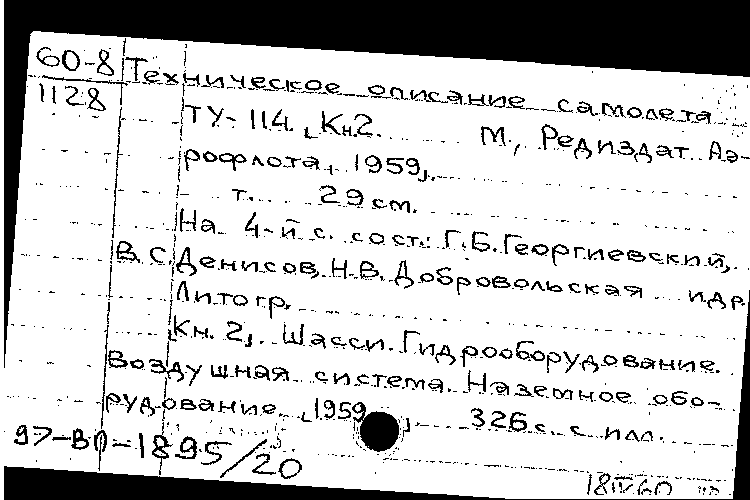 60-8 Техническое описание самолета
1128
ТУ-114. Кн.2. М., Редиздат Аэ-
рофлота, 1959.
т. 29 см.
На 4-й с. сост.: Г.Б.Георгиевский,
В.С.Денисов, Н.В. Добровольская и др.
Литогр.
Кн. 2. Шасси. Гидрооборудование.
Воздушная система. Наземное обо-
рудование. 1959. 326 с. с илл.
97-ВП-1895/20
18 IV 60